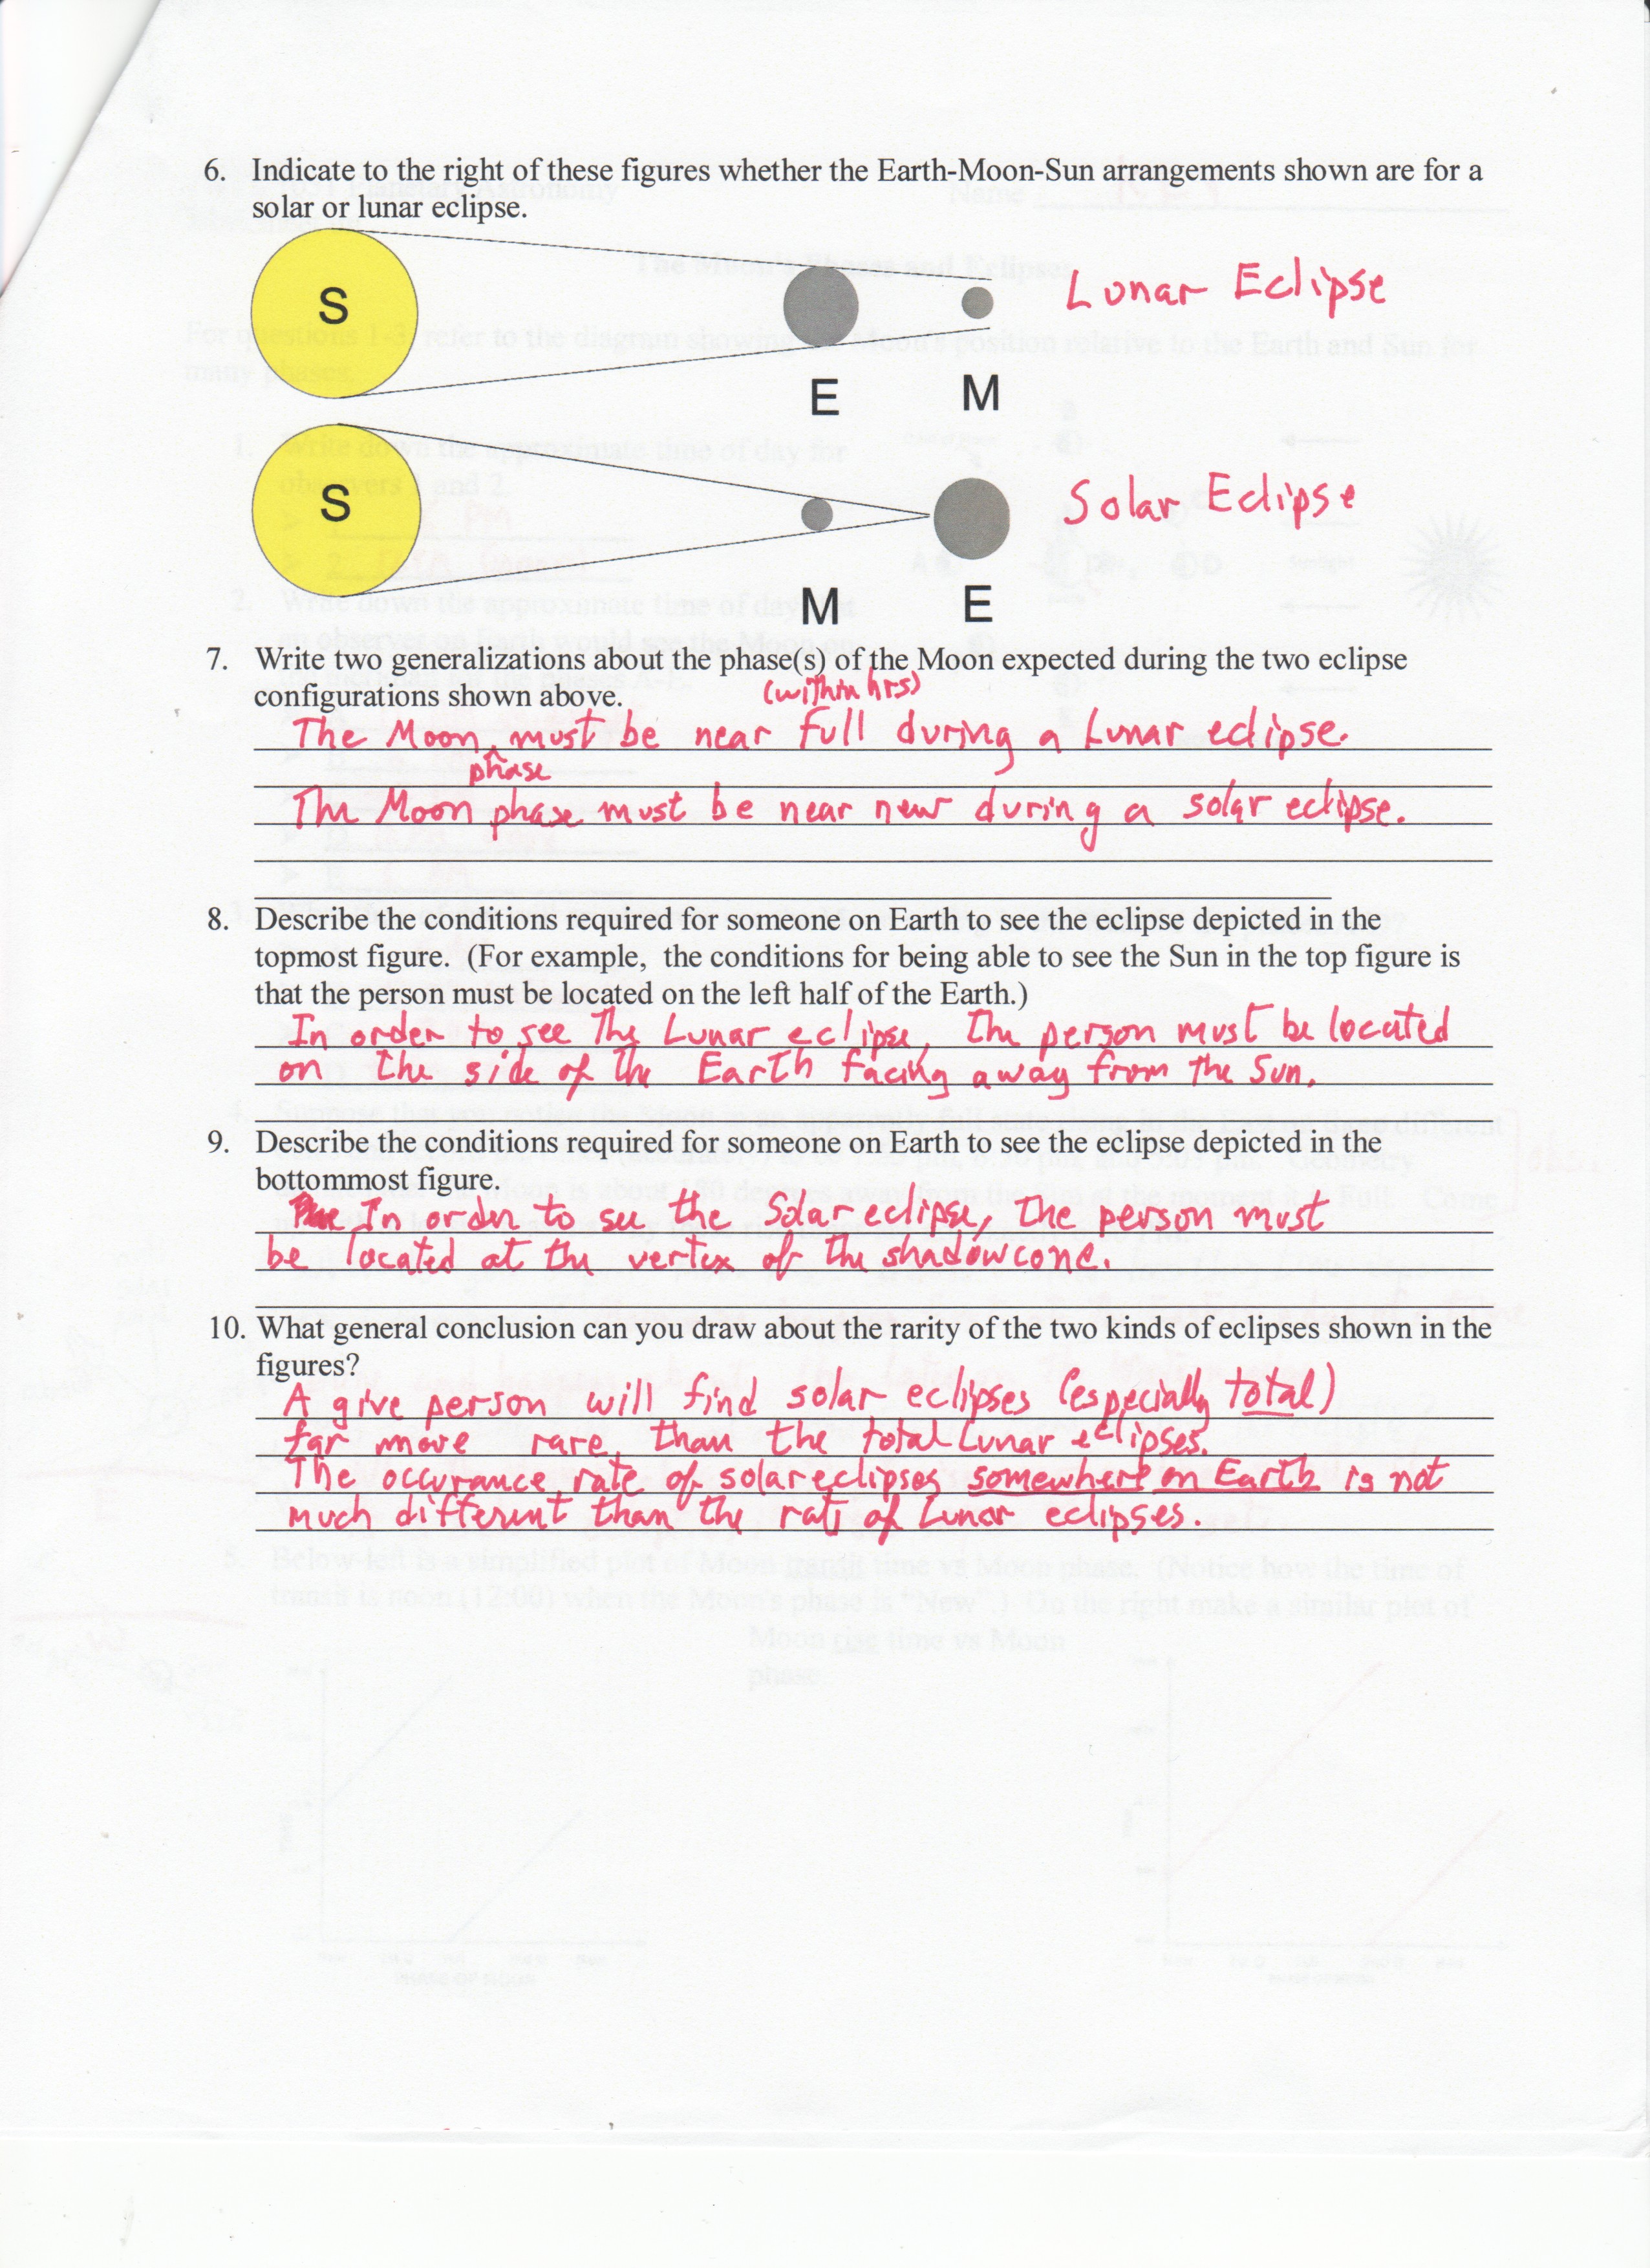 6. Indicate to the right of these figures whether the Earth-Moon-Sun arrangements shown are for a
solar or lunar eclipse.
S
Lunar Eclipse
E M
S
Solar Eclipse
M E
7. Write two generalizations about the phase(s) of the Moon expected during the two eclipse
configurations shown above.
(within hrs)
The Moon ^ must be near full during a Lunar eclipse.
phase
The Moon phase must be near new during a solar eclipse.
8. Describe the conditions required for someone on Earth to see the eclipse depicted in the
topmost figure. (For example, the conditions for being able to see the Sun in the top figure is
that the person must be located on the left half of the Earth.)
In order to see the Lunar eclipse, the person must be located
on the side of the Earth facing away from the Sun.
9. Describe the conditions required for someone on Earth to see the eclipse depicted in the
bottommost figure.
In order to see the Solar eclipse, the person must
be located at the vertex of the shadow cone.
10. What general conclusion can you draw about the rarity of the two kinds of eclipses shown in the
figures?
A give person will find solar eclipses (especially total)
far more rare, than the total Lunar eclipses.
The occurance rate of solar eclipses somewhere on Earth is not
much different than the rate of Lunar eclipses.
For questions 1-3, refer to the diagram showing the Moon's position relative to the Earth and Sun for
many phases.